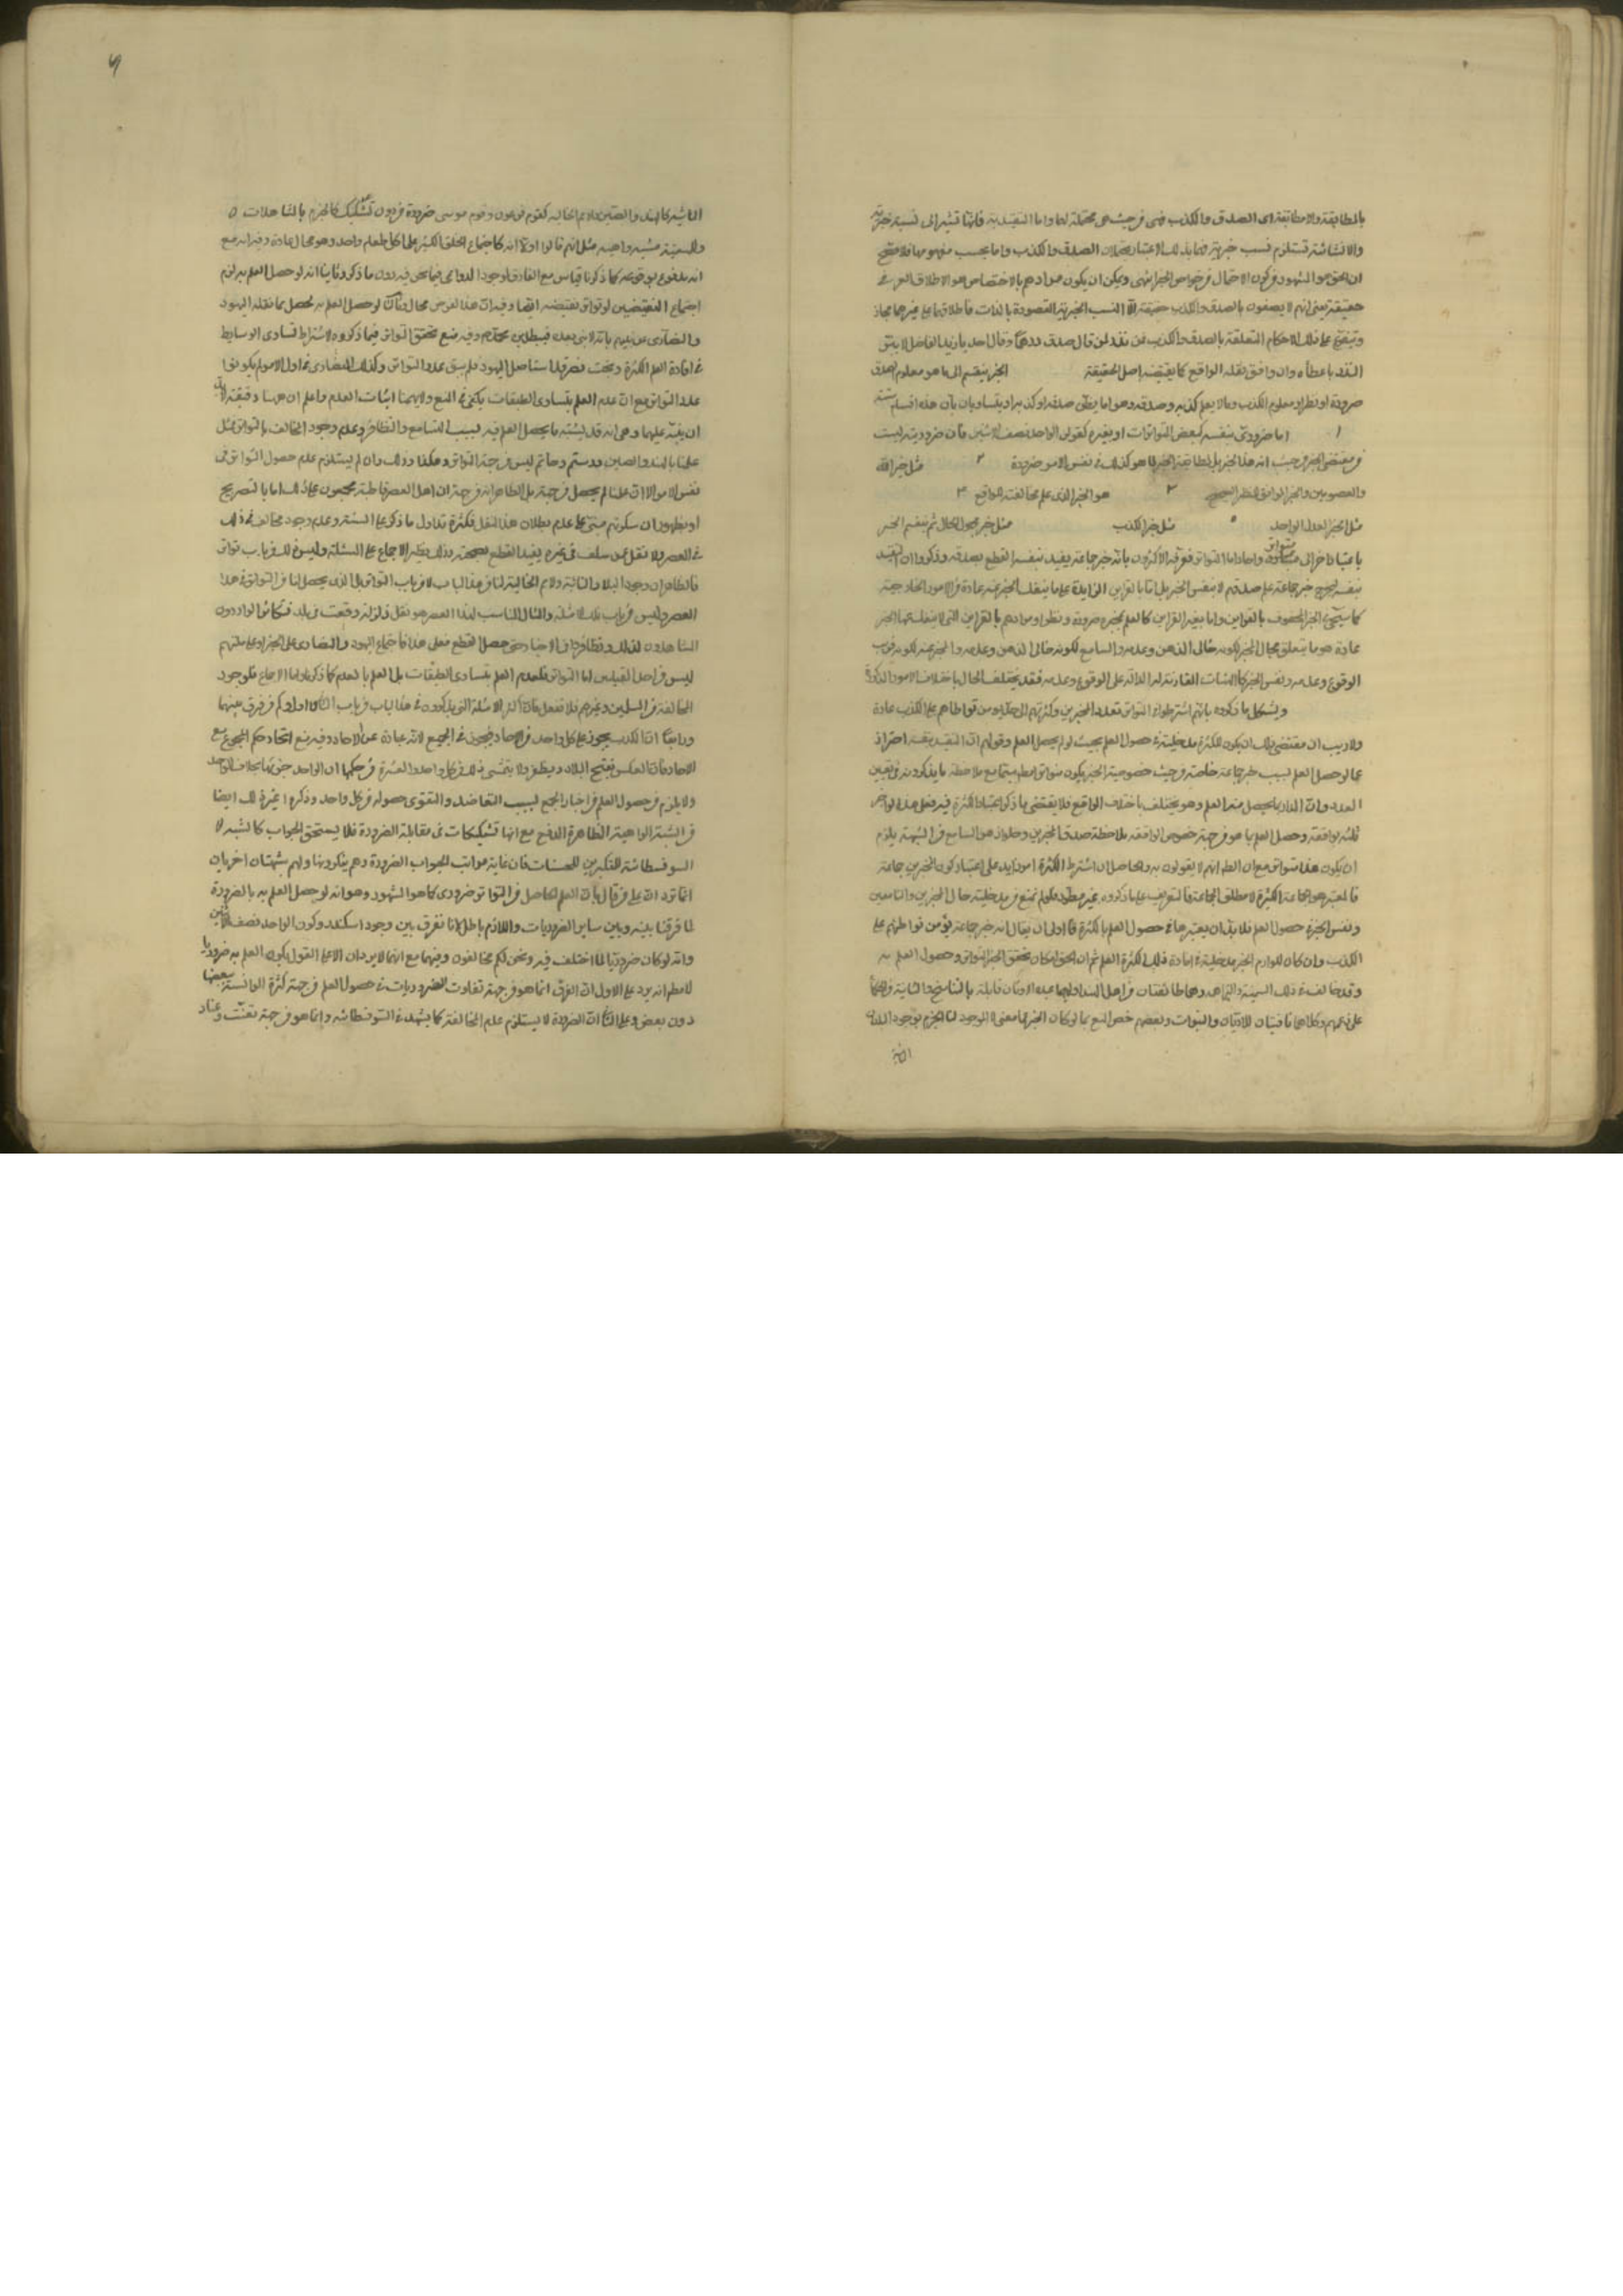 بالمطابقة واللامطابقة اى الصدق والكذب فهى من حيث هى محتملة لهما واما التقييدية فانها تشير الى نسبة خبرية
والانشائية تستلزم نسب خبرية فهما بذلك الاعتبار يحتملان الصدق والكذب واما بحسب مفهومهما فلا فصح
ان الحق هو المشهود من كون الاحتمال من خواص الخبر انتهى ويمكن ان يكون مرادهم بالاختصاص هو الاطلاق العرفى
حقيقة يعنى انهم لا يصفون بالصدق والكذب حقيقة الا النسب الخبرية المقصودة بالذات فاطلاقهما على غيرهما مجاز
ويتفرع على ذلك الاحكام المتعلقة بالصدق والكذب فمن نذر لمن قال صدق درهما وقال احد يا زيد الفاضل لا يتعلق
النذر باعطائه وان وافق نقله الواقع كما يقتضيه اصل الحقيقة الخبر ينقسم الى ما هو معلوم الصدق
ضرورة او نظرا ومعلوم الكذب وما لا يعلم كذبه وصدقه وهو اما يظن صدقه او كذبه او يتساويان بأن هذه اقسام ستة
١ اما ضرورى بنفسه كبعض المتواترات او بغيره كقولنا الواحد نصف الاثنين فان ضروريته ليست
من مقتضى الخبر من حيث انه هذا الخبر بل لمطابقة الخبر لما هو كذلك فى نفس الامر ضرورة ٢ مثل خبر الله
والمعصومين والخبر الموافق للنظر الصحيح ٣ هو الخبر الذى علم مخالفته للواقع ٤
مثل الخبر العدل الواحد ٥ مثل خبر الكذب مثل خبر مجهول الحال ثم ينقسم الخبر
باعتبار اخر الى متواتر واحاد اما التواتر فعرفه الاكثرون بأنه خبر جماعة يفيد بنفسه القطع بصدقه وذكروا ان التقييد
بنفسه ليخرج خبر جماعة علم صدقهم لا بنفس الخبر بل اما بالقراين الزايدة على ما ينفك الخبر عنه عادة من الامور الخارجية
كما سيجئ فى الخبر المحفوف بالقراين واما بغير القراين كالعلم بمخبره ضرورة او نظرا ومرادهم بالقراين التى لا ينفك عنها الخبر
عادة هو ما يتعلق بحال المخبر ككونه خالى الذهن وعدمه والسامع لكونه خالى الذهن وعدمه والمخبر عنه لكونه قريب
الوقوع وعدمه ونفس الخبر كالهيئات المقارنة له الدالة على الوقوع وعدمه فقد يختلف الحال باختلاف الامور المذكورة
ويشكل ما ذكروه بانهم اشترطوا فى التواتر تعدد المخبرين وكثرتهم الى حد يؤمن تواطاهم على الكذب عادة
ولا ريب ان مقتضى ذلك ان يكون للكثرة مدخلية فى حصول العلم بحيث لو لم يحصل العلم وقولهم ان التقييد بنفسه احتراز
عما لو حصل العلم بسبب خبر جماعة خاصة من حيث خصوصية المخبر
العدد وان المدار ما يحصل منه العلم وهو يختلف باختلاف الواقع فلا يقتضى ما ذكر اعتبار الكثرة فيه فعلى هذا لو اخبر
ثلثة بواقعة وحصل العلم بها هو من جهة خصوص الواقعة بملاحظة صدق المخبرين وخلو ذهن السامع من الشبهة يلزم
ان يكون هذا متواترا مع ان الظ انهم لا يقولون به والحاصل ان اشتراط الكثرة امر زايد على اعتبار كون المخبرين جماعة
فالمعتبر هو الجماعة الكثيرة لا مطلق الجماعة فالتعريف على ما ذكروه غير مطرد
ونفس الخبر فى حصول العلم فلا بد ان يعتبر هنا فى حصول العلم بالكثرة فالاولى ان يقال انه خبر جماعة يؤمن تواطئهم على
الكذب وان كان للوازم الخبر مدخلية فى افادة تلك الكثرة العلم ثم ان الحق امكان تحقق الخبر المتواتر وحصول العلم به
وقد خالف فى ذلك السمنية والبراهمة وهما طائفتان من اهل الهند اولهما عبدة الاوثان قايلة بالتناسخ والثانية
على زعمهم وكلاهما نافيتان للاديان والنبوات وبعضهم خص المنع بما لو كان الخبر عما مضى لا الموجود لنا الجزم بوجود البلاد
النائية كالهند والصين والامم الخالية كقوم فرعون وقوم موسى ضرورة من دون تشكيك كالجزم بالمشاهدات
وللسمنية شبه واهية مثل انهم قالوا اولا انه كاجتماع الخلق الكثير على اكل طعام واحد وهو محال عادة وفيه انه مع
انه مدفوع بوقوعه كما ذكرنا قياس مع الفارق لوجود الدواعى فيما نحن فيه دون ما ذكر وثانيا انه لو حصل العلم به لزم
اجتماع النقيضين لو تواتر نقيضه ايضا وفيه ان هذا الفرض محال وثالثا لو حصل العلم به لحصل بما نقله اليهود
والنصارى عن نبيهم بانه لا نبى بعده فيبطل دين محمد ص وفيه منع تحقق التواتر فيما ذكروه لاشتراط تساوى الوسايط
فى افادة العلم الكثرة وبخت نصر قد استأصل اليهود فلم يبق عدد التواتر وكذلك النصارى فى اول الامر لم يكونوا
عدد التواتر مع ان عدم العلم بتساوى الطبقات يكفى فى المنع ولا يهمنا اثبات العدم واعلم ان ههنا دقيقة لا بد
ان ينبه عليها وهى انه قد يشتبه ما يحصل العلم فيه بسبب التسامع والتظافر وعدم وجود المخالف بالتواتر فمثل
علمنا بالهند والصين ورستم وحاتم ليس من جهة التواتر وهكذا وذلك وان لم يستلزم عدم حصول التواتر فى
نفس الامر الا ان علمنا لم يحصل من جهته بل الظاهر انه من جهة ان اهل العصر قاطبة مجمعون على ذلك اما بالتصريح
او بظهور ان سكوتهم مبنى على عدم بطلان هذا النقل فكثرة تداول ما ذكر على الالسنة وعدم وجود مخالف فى ذلك
فى العصر ولا نقل عن سلف فى غيره يفيد القطع بصحته وذلك نظير الاجماع على المسئلة وليس ذلك من باب تواتر
فالظاهر ان وجود البلاد النائية والامم الخالية لنا من هذا الباب لا من باب التواتر بل الذى يحصل لنا من التواتر فى هذا
العصر وليس من باب تلك الامثلة والمثال المناسب لهذا العصر هو نقل زلزلة وقعت فى بلد فتكاثر الواردون
المشاهدون لذلك وتظافروا فى الاخبار حتى حصل القطع فعلى هذا فاجماع اليهود والنصارى على الخبر
ليس من احد القبيلين اما التواتر فلعدم العلم بتساوى الطبقات بل العلم بالعدم كما ذكرنا واما الاجماع فلوجود
المخالف من المسلمين وغيرهم فلا تغفل فان اكثر الامثلة التى يذكرونه فى هذا الباب من باب الثانى لا الاول وكم من فرق بينهما
ورابعا ان الكذب يجوز على كل واحد من الاحاد فيجوز على الجميع لانه عبارة عن الاحاد وفيه منع اتحاد حكم المجموع مع
الاحاد فان العسكر يفتح البلاد ويظفر ولا يتمشى ذلك من كل واحد والعشرة من حكمها ان الواحد جزء لها بخلاف الواحد
ولا يلزم من حصول العلم من اخبار الجمع بسبب التعاضد والتقوى حصوله من كل واحد وذكروا غير ذلك ايضا
من الشبه الواهية الظاهرة الدفع مع انها تشكيكات فى مقابلة الضرورة فلا يستحق الجواب كالشبه لا
السوفسطائية المنكرين للحسيات فان غاية مراتب الجواب الضرورة وهم ينكرونها ولهم شبهتان اخريان
انما تردان على من قال بان العلم الحاصل من التواتر ضرورى كما هو المشهور وهو انه لو حصل العلم به بالضرورة
لما فرقنا بينه وبين ساير الضروريات واللازم باطل لانا نفرق بين وجود اسكندر وكون الواحد نصف الاثنين
وانه لو كان ضروريا لما اختلف فيه ونحن لكم مخالفون وفيهما مع انهما لا يردان الا على القول بكون العلم به ضروريا
لا مط انه يرد على الاول ان الفرق انما هو من جهة تفاوت الضروريات فى حصول العلم من جهة كثرة الموانسة ببعضها
دون بعض وعلى الثانى ان الضرورة لا يستلزم عدم المخالفة كما يشهد به السوفسطائية وانما هو من جهة تعنت وعناد